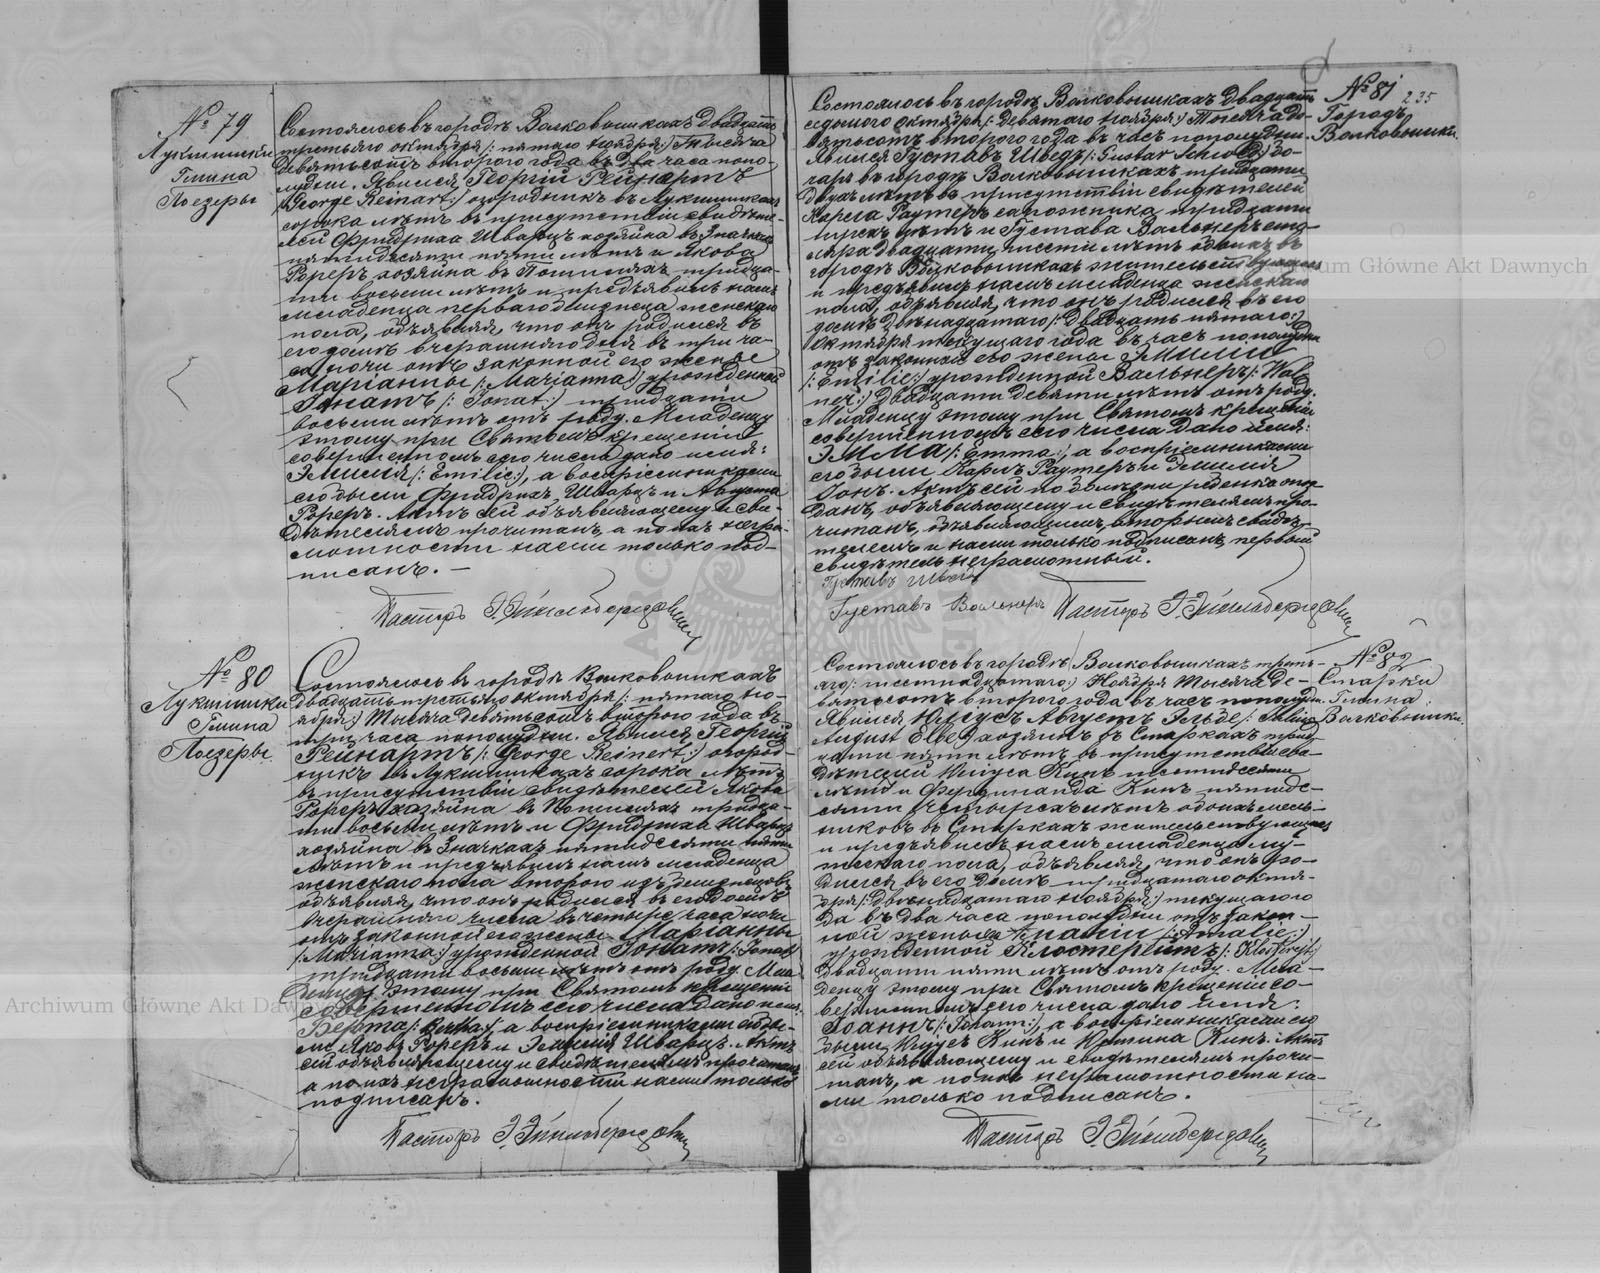 № 79
Лукшишки
Гмина
Поезеры
Состоялось въ городѣ Волковышкахъ двадцать
третьяго октября /: пятаго ноября :/ тысяча
девятьсотъ второго года въ два часа попо-
лудни. Явился Георгій Рейнартъ
/: George Reinart :/ огородникъ въ Лукшишкахъ
сорока лѣтъ въ присутствіи свидѣте-
лей Фридриха Шварцъ хозяина въ Значкахъ
пятидесяти пяти лѣтъ и Якова
Рореръ хозяина въ Попишкахъ тридца-
ти восьми лѣтъ и предъявилъ намъ
младенца перваго близнеца женскаго
пола, объявляя, что онъ родился въ
его домѣ вчерашняго дня въ три ча-
са ночи отъ законной его жены
Маріанны /: Marianna :/ урожденной
Іонатъ /: Jonat :/ тридцати
восьми лѣтъ отъ роду. Младенцу
этому при Святомъ крещеніи
совершенномъ сего числа дано имя:
Эмилія /: Emilie :/, а воспріемниками
его были Фридрихъ Шварцъ и Августа
Рореръ. Актъ сей объявляющему и сви-
дѣтелямъ прочитанъ, а по ихъ негра-
мотности нами только под-
писанъ. —
Пасторъ
№ 80
Лукшишки
Гмина
Поезеры
Состоялось въ городѣ Волковышкахъ
двадцать третьяго октября /: пятаго но-
ября :/ тысяча девятьсотъ второго года въ
три часа пополудни. Явился Георгій
Рейнартъ /: George Reinert :/ огород-
никъ въ Лукшишкахъ сорока лѣтъ
въ присутствіи свидѣтелей Якова
Рореръ хозяина въ Попишкахъ тридца-
ти восьми лѣтъ и Фридриха Шварцъ
хозяина въ Значкахъ пятидесяти пяти
лѣтъ и предъявилъ намъ младенца
женскаго пола второго изъ близнецовъ
объявляя, что онъ родился въ его домѣ
вчерашняго числа въ четыре часа ночи
отъ законной его жены Маріанны
/: Marianna :/ урожденной Іонатъ /: Jonat :/
тридцати восьми лѣтъ отъ роду. Мла-
денцу этому при Святомъ крещеніи
совершенномъ сего числа дано имя:
Берта /: Bertha :/, а воспріемниками его бы-
ли Яковъ Рореръ и Эмилія Шварцъ. Актъ
сей объявляющему и свидѣтелямъ прочитанъ,
а по ихъ неграмотности нами только
подписанъ.
Пасторъ
№ 81
235
Городъ
Волковышки.
Состоялось въ городѣ Волковышкахъ двадцать
седьмого октября /: девятаго ноября :/ тысяча де-
вятьсотъ второго года въ часъ пополудни.
Явился Густавъ Шведъ /: Gustav Schwed :/ го-
наръ въ городѣ Волковышкахъ тридцати
двухъ лѣтъ въ присутствіи свидѣтелей
Карла Раутеръ сапожника тридцати
лѣтъ и Густава Вальнеръ сто-
ляра двадцати шести лѣтъ обоихъ въ
городѣ Волковышкахъ жительствующихъ
и предъявилъ намъ младенца женскаго
пола, объявляя, что онъ родился въ его
домѣ двѣнадцатаго /: двадцать пятаго :/
октября текущаго года въ часъ пополудни
отъ законной его жены Эмиліи
/: Emilie :/ урожденной Вальнеръ /: Wal-
ner :/ двадцати девяти лѣтъ отъ роду.
Младенцу этому при Святомъ крещеніи
совершенномъ сего числа дано имя:
Эмма /: Emma :/, а воспріемниками
его были Карлъ Раутеръ и Эмилія
Іонъ. Актъ сей по болѣзни ребенка опоз-
данъ, объявляющему и свидѣтелямъ про-
читанъ, объявляющимъ, вторымъ свидѣ-
телемъ и нами только подписанъ, первый
свидѣтель неграмотный.
Густавъ Шведъ
Густавъ Вальнеръ Пасторъ
№ 82
Старки
Гмина
Волковышки.
Состоялось въ городѣ Волковышкахъ треть-
яго /: шестнадцатаго :/ Ноября тысяча де-
вятьсотъ второго года въ часъ пополудни.
Явился Юлiусъ Августъ Эльбе /: Julius
August Elbe :/ хозяинъ въ Старкахъ трид-
цати пяти лѣтъ въ присутствіи сви-
дѣтелей Юлiуса Кинъ шестидесяти
лѣтъ и Фердинанда Кинъ пятиде-
сяти четырехъ лѣтъ обоихъ мель-
никовъ въ Старкахъ жительствующихъ
и предъявилъ намъ младенца му-
жескаго пола, объявляя, что онъ ро-
дился въ его домѣ тридцатаго октя-
бря /: двѣнадцатаго Ноября :/ текущаго го-
да въ два часа пополудни отъ закон-
ной жены Амаліи /: Amalie :/
урожденной Клостерейтъ /: Klosterejt :/
двадцати пяти лѣтъ отъ роду. Мла-
денцу этому при Святомъ крещеніи со-
вершенномъ сего числа дано имя:
Іоаннъ /: Johann :/, а воспріемниками его
были Юлiусъ Кинъ и Юстина Кинъ. Актъ
сей объявляющему и свидѣтелямъ прочи-
танъ, а по ихъ неграмотности на-
ми только подписанъ.
Пасторъ
Archiwum Główne Akt Dawnych
Archiwum Główne Akt Dawnych